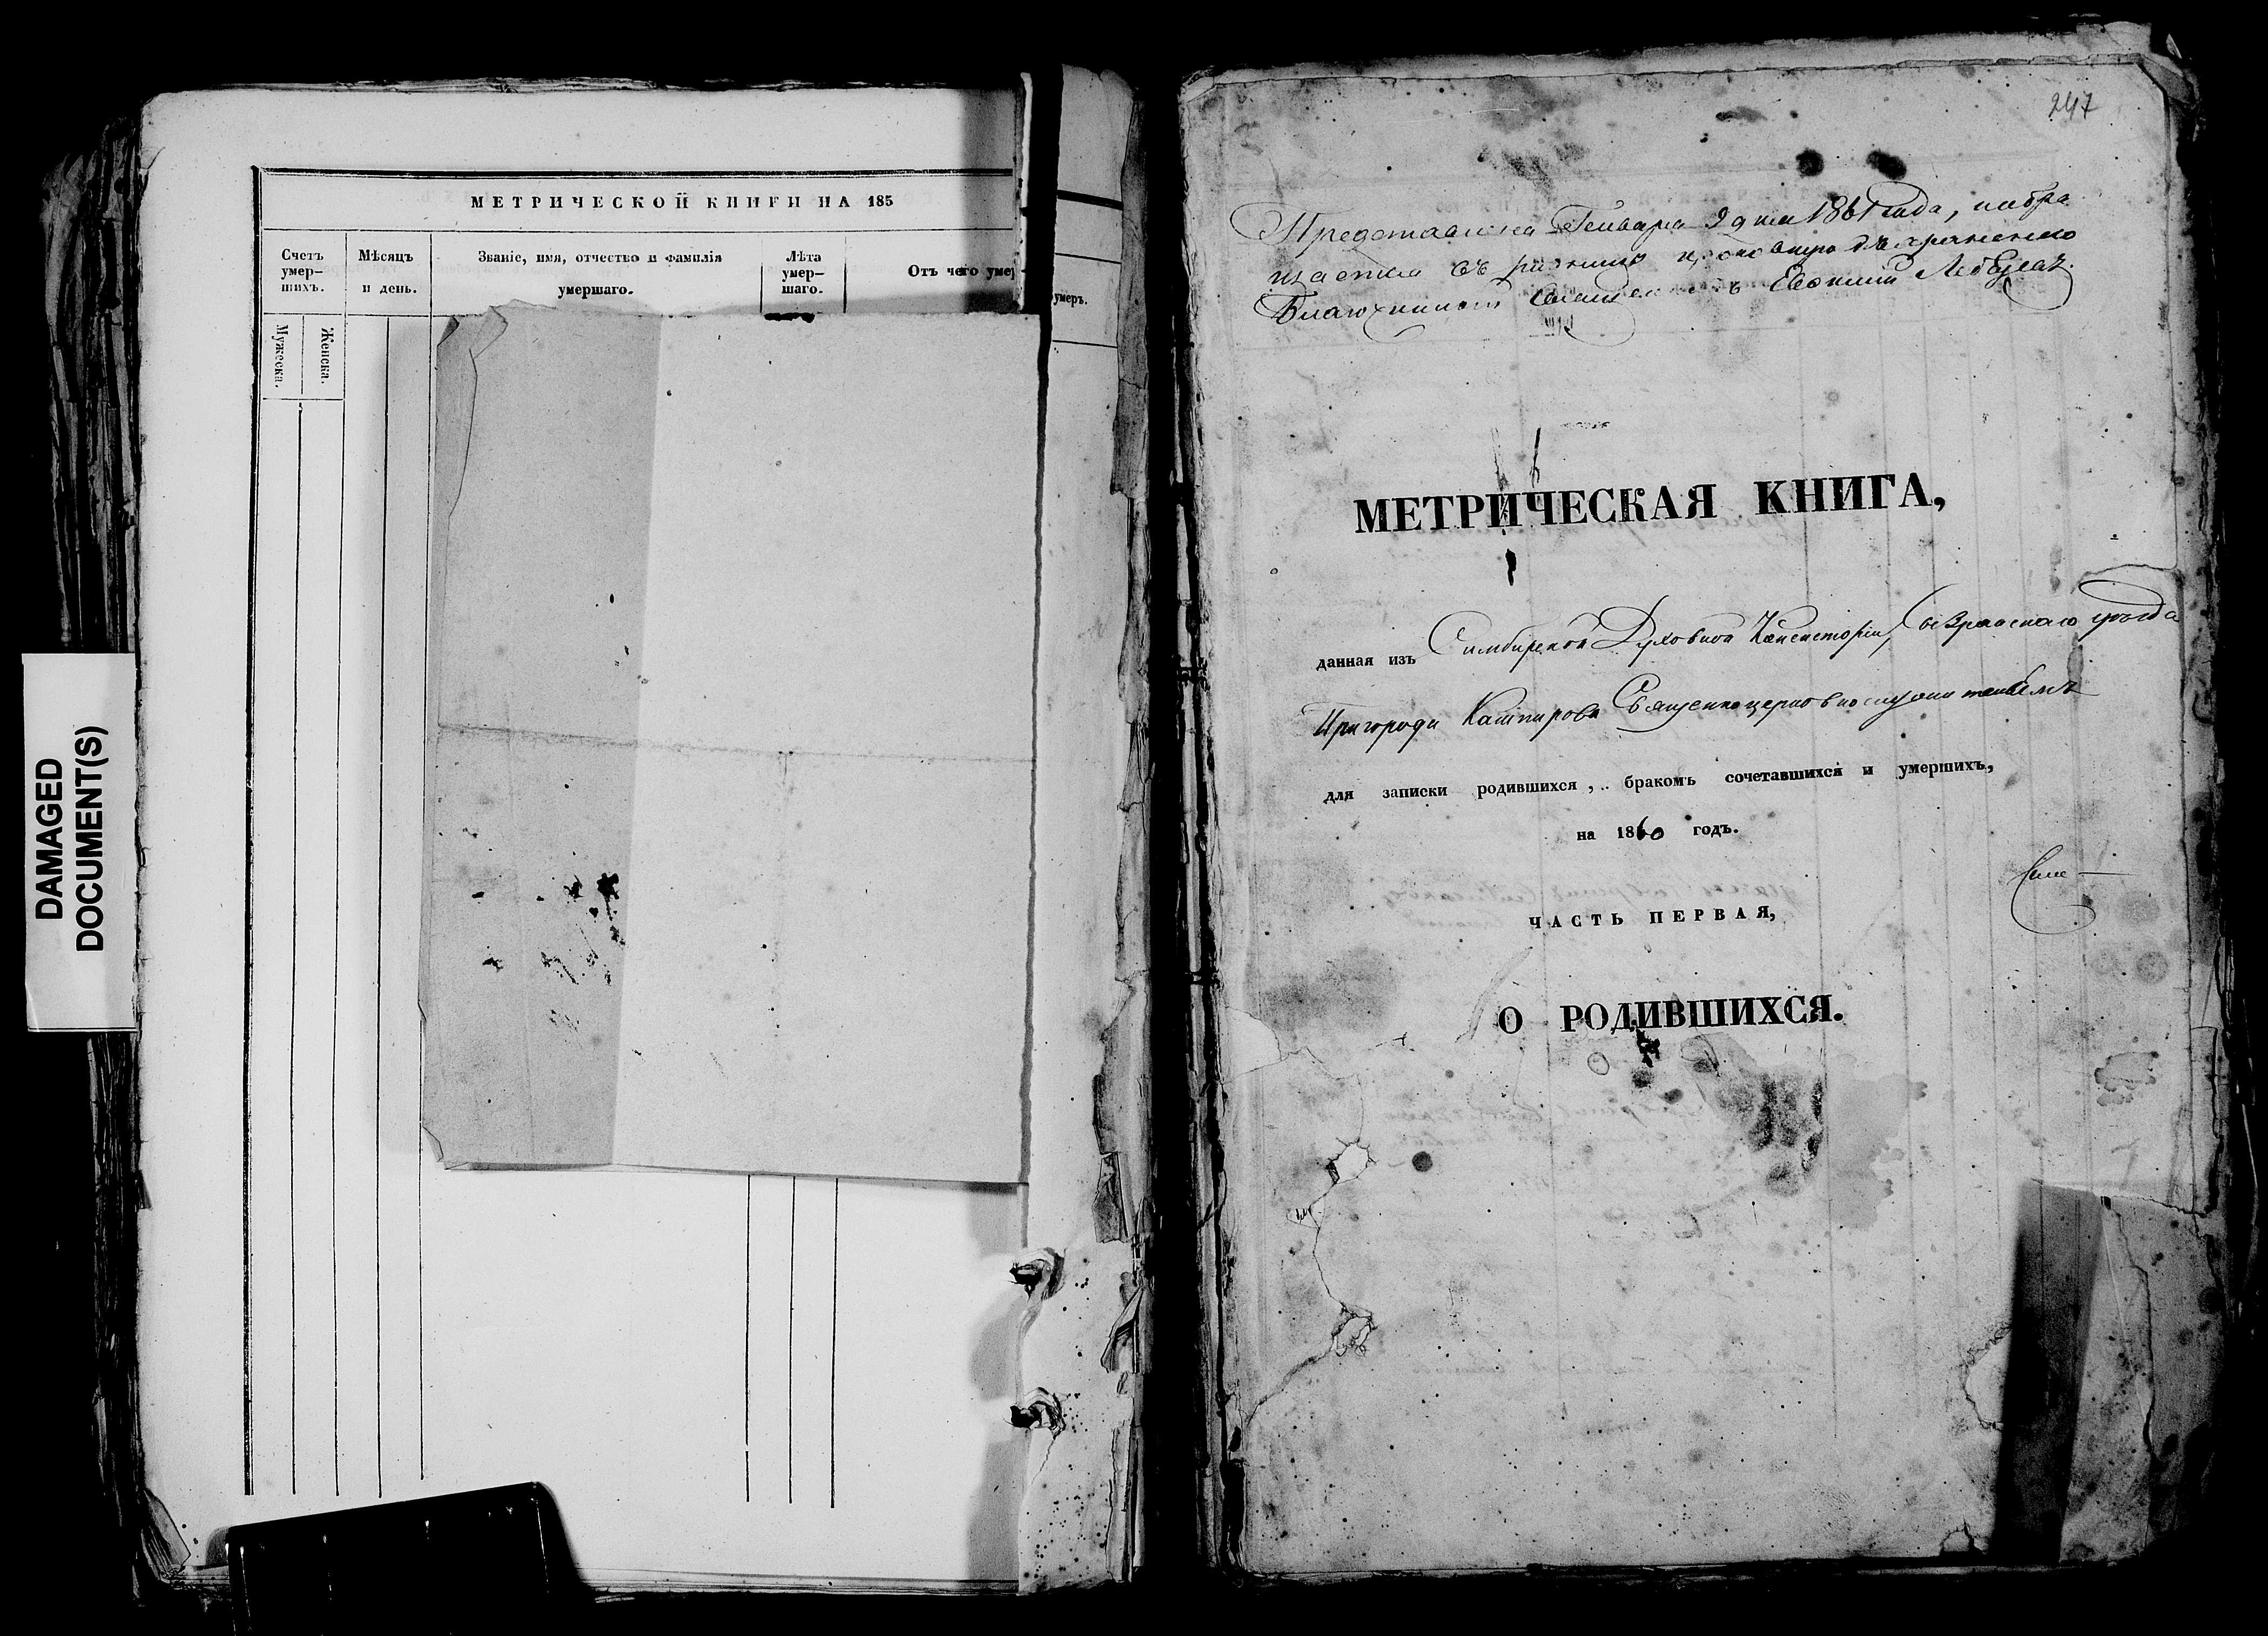 DAMAGED
DOCUMENT(S)
МЕТРИЧЕСКОЙ КНИГИ НА 185
Счетъ
умер-
шихъ.
Мужеска.
Женска.
Мѣсяцъ
и день.
Званіе, имя, отчество и фамилія
умершаго.
Лѣта
умер-
шаго.
Отъ чего умер
умеръ.
247
Представлена Генваря 9 дня 1861 года,
въ
Благочинный Священникъ Евфимій Лебедевъ.
МЕТРИЧЕСКАЯ КНИГА,
данная изъ Симбирской Духовной Консисторіи, Сызранскаго уѣзда
Пригорода Кашпирова Священноцерковнослужителемъ
для записки родившихся, бракомъ сочетавшихся и умершихъ,
на 1860 годъ.
ЧАСТЬ ПЕРВАЯ,
О РОДИВШИХСЯ.